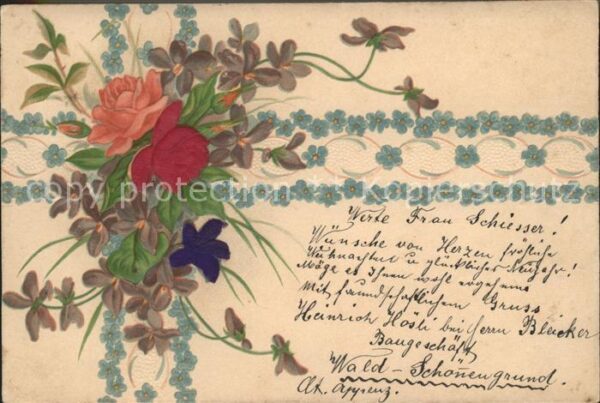 copy protection © Kartenschutz
Werte Frau Schiesser!
Wünsche von Herzen fröhliche
Weihnachten u glückliches Neujahr!
Möge es Ihnen wohl ergehen
Mit freundschaftlichem Gruss
Heinrich Hösli bei Herrn Bleicker
Baugeschäft
Wald - Schönengrund.
Ct. Appenz.